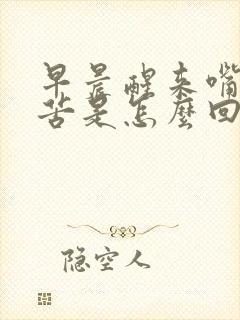 早晨醒来嘴
苦是怎麼回
隐空人